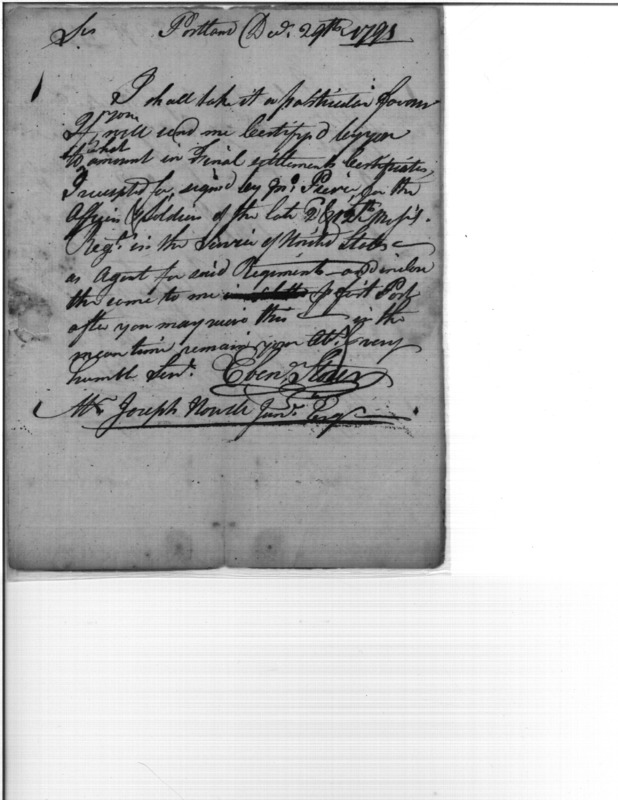 Sir Portland Decr. 29th 1791
I shall take it a particular favour
If you will send me Certifyd by you
to what amount in Final settlements Certificates
I receipted for, signed by Jno. Peirce, for the
Officers & Soldiers of the late & 12th Massts.
Regts. in the Service of United States
as Agent for said Regiments and inclose
the same to me pr first Post
after you may receive this in the
mean time remain your Obt. & very
humble Servt. Eben
Mr. Joseph Junr. Esqr.